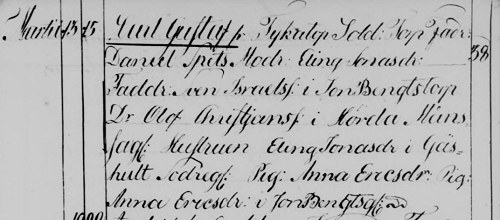 Martii 13 15 Carl Gustaf fr Fykritop Sold: Torp Fader
Daniel Spets Modr: Eling Jonasdr: 38
Faddr: Sven Israelsf: i Jon Bengtstorp
Dr Olof Christjansf: i Hörda Måns
gagf: Hustrun Eling Jonasdr i Gås-
hult Sodregf: Pig: Anna Ericsdr: Pig:
Anna Ericsdr: i Jon Bengtsgf: